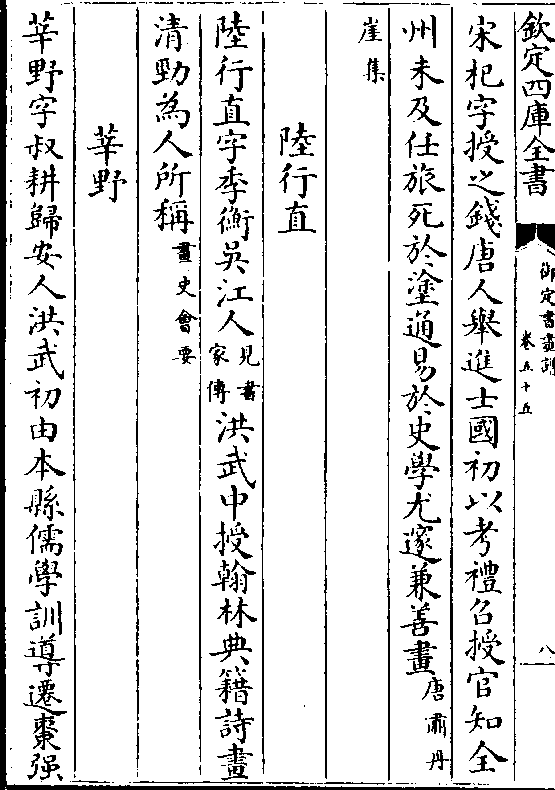 欽定四庫全書
御定書畫譜
卷五十五
八
宋杞字授之錢唐人舉進士國初以考禮召授官知全
州未及仕旅死於塗通易於史學尤邃兼善畫唐肅丹
崖集
陸行直
陸行直字季衡吳江人見書家傳洪武中授翰林典籍詩畫
清勁為人所稱畫史會要
莘野
莘野字叔耕歸安人洪武初由本縣儒學訓導遷棗强